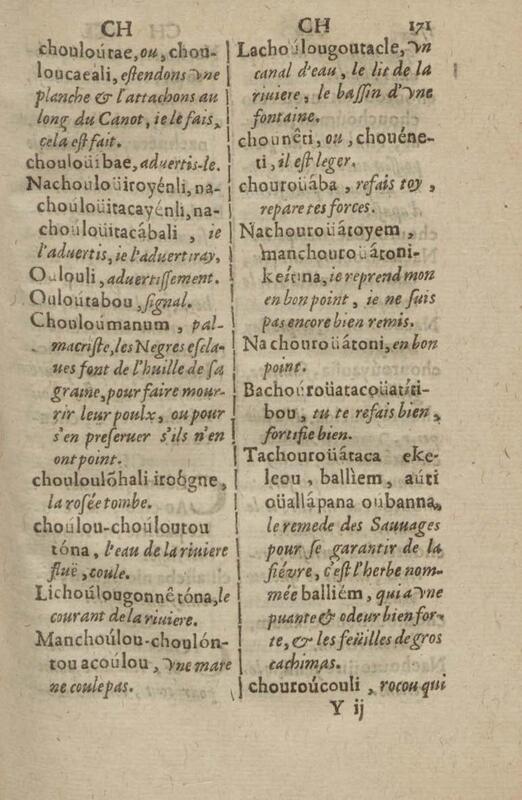 CH
CH 171
chouloútae, ou, chou-
loucaeali, estendons vne
planche & l'attachons au
long du Canot, ie le fais,
cela est fait.
chouloüibae, aduertis-le.
Nachouloüiroyénli, na-
choúloüitacayénli, na-
choúloüitacábali , ie
l'aduertis, ie l'aduertiray,
Oulouli, aduertissement.
Ouloútabou, signal.
Chouloúmanum , pal-
macriste, les Negres escla-
ues font de l'huille de sa
graine, pour faire mour-
rir leur poulx, ou pour
s'en preseruer s'ils n'en
ont point.
chouloulõhali irobgne,
la rosée tombe.
choúlou-choúloutou
tóna, l'eau de la riuiere
fluë, coule.
Lichoúlougonnêtóna, le
courant de la riuiere.
Manchoúlou-choulón-
tou acoúlou, vne mare
ne coule pas.
Lachoúlougoutacle, vn
canal d'eau, le lit de la
riuiere, le bassin d'vne
fontaine.
chounêti, ou, chouéne-
ti, il est leger.
chourouába, refais toy,
repare tes forces.
Nachouroüátoyem,
manchouroüátoni-
keírna, ie reprend mon
en bon point, ie ne suis
pas encore bien remis.
Nachouroüátoni, en bon
point.
Bachoúroüatacoüatíti-
bou, tu te refais bien,
fortifie bien.
Tachouroüátaca eke-
leou, ballìem, aúti
oüallápana oúbanna,
le remede des Sauuages
pour se garantir de la
fiévre, c'est l'herbe nom-
mée balliém, qui a vne
puante & odeur bien for-
te, & les feüilles de gros
cachimas.
chouroúcouli, rocou qui
Y ij